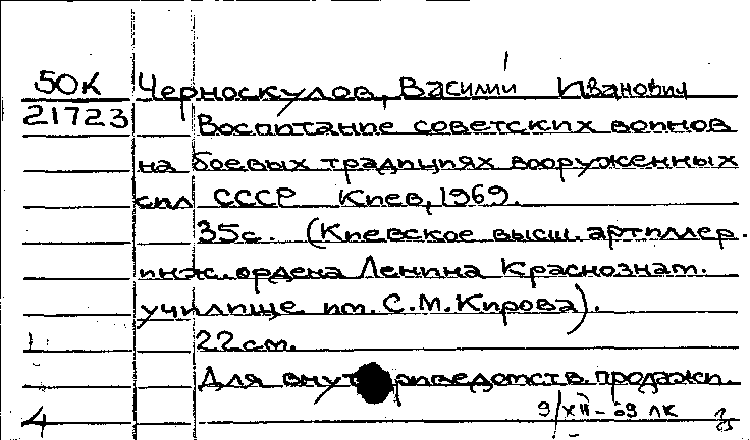 50К Черноскулов, Василий Иванович
21723 Воспитание советских воинов
на боевых традициях вооруженных
сил СССР Киев, 1969.
35с. (Киевское высш. артиллер.
инж. ордена Ленина Краснознам.
училище им. С.М. Кирова).
22 см.
Для ведомств. продажи.
9/XII-69 ЛК